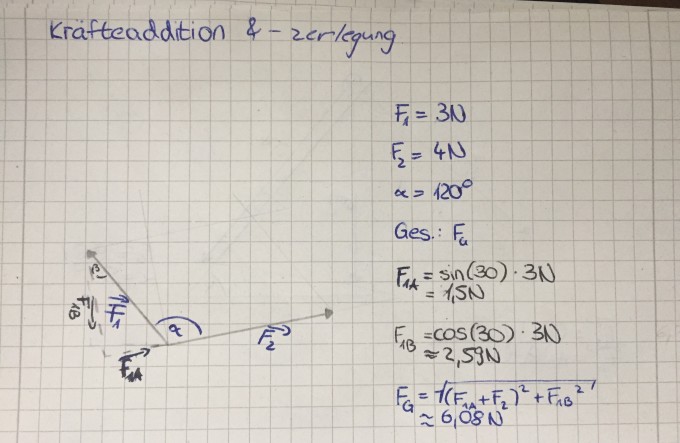 Kräfteaddition & -zerlegung
F₁ = 3N
F₂ = 4N
α = 120°
Ges.: F_G
F₁A = sin(30) · 3N
= 1,5N
F₁B = cos(30) · 3N
≈ 2,59N
F_G = √((F₁A + F₂)² + F₁B²)
≈ 6,08N
β
F₁B
F₁
α
F₂
F₁A